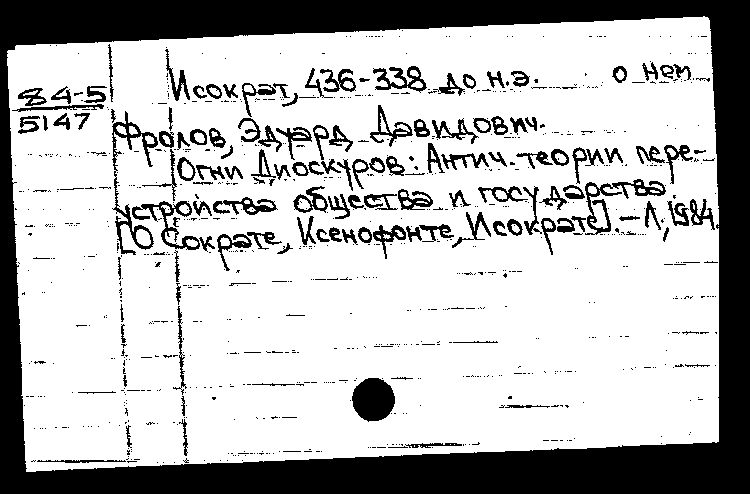 Исократ, 436-338 до н.э. о нем
84-5
5147
Фролов, Эдуард Давидович.
Огни Диоскуров: Антич. теории пере-
устройства общества и государства.
[О Сократе, Ксенофонте, Исократе]. – Л., 1984.